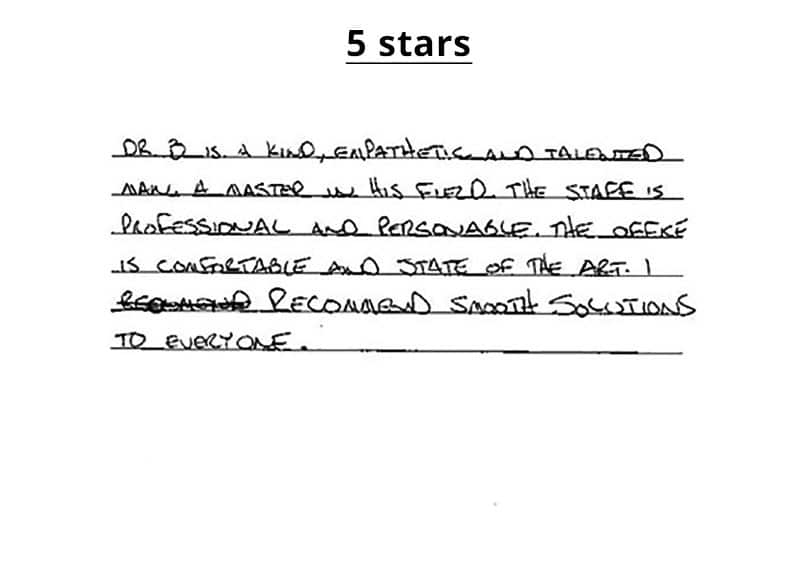 5 stars
DR. B IS A KIND, EMPATHETIC AND TALENTED
MAN. A MASTER IN HIS FIELD. THE STAFF IS
PROFESSIONAL AND PERSONABLE. THE OFFICE
IS COMFORTABLE AND STATE OF THE ART. I
RECOMMEND SMOOTH SOLUTIONS
TO EVERYONE.